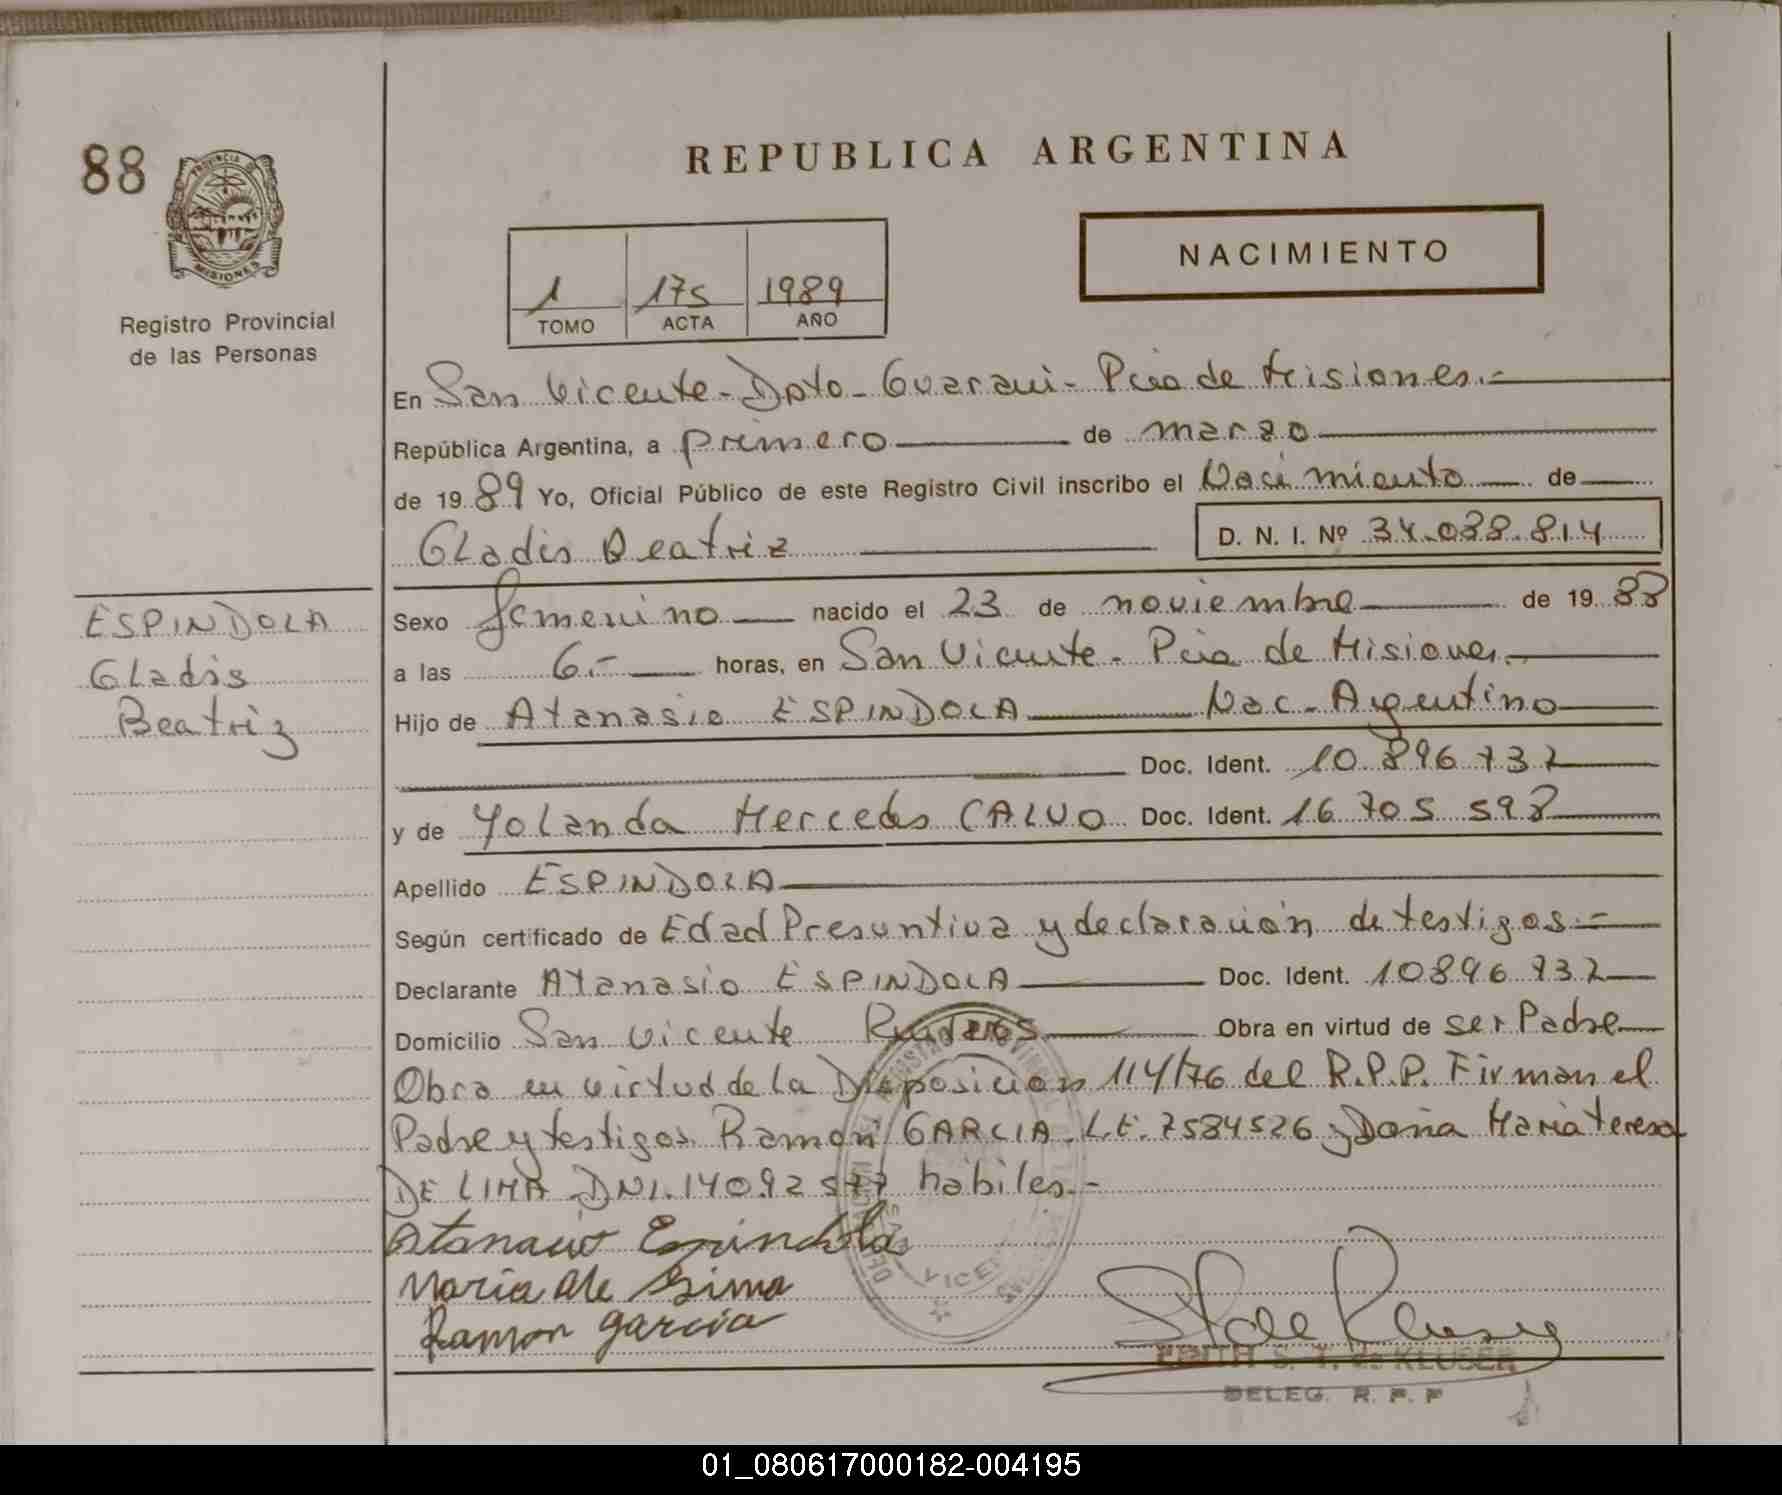 88
PROVINCIA DE
MISIONES
Registro Provincial
de las Personas
REPUBLICA ARGENTINA
1 175 1989
TOMO ACTA AÑO
NACIMIENTO
En San Vicente - Dpto - Guarani - Pcia de Misiones.-
República Argentina, a primero de marzo
de 19 89 Yo, Oficial Público de este Registro Civil inscribo el Nacimiento de
Gladis Beatriz D. N. I. Nº 34.038.814
ESPINDOLA
Gladis
Beatriz
Sexo femenino nacido el 23 de noviembre de 19 88
a las 6.- horas, en San Vicente - Pcia de Misiones.-
Hijo de Atanasio ESPINDOLA Nac. Argentino
Doc. Ident. 10.896.732
y de Yolanda Mercedes CALVO Doc. Ident. 16.705.598
Apellido ESPINDOLA
Según certificado de Edad Presuntiva y declaración de testigos.-
Declarante Atanasio ESPINDOLA Doc. Ident. 10896.732
Domicilio San Vicente Obra en virtud de ser Padre
Obra en virtud de la Disposicion 114/76 del R.P.P. Firman el
Padre y testigos Ramon GARCIA L.E. 7584526 y Doña Maria Teresa
DE LIMA DNI. 14092577 hábiles.-
Atanacio Espindola
Maria de Lima
Ramon Garcia
VICENTE
EDITH S. T. de KLUSER
DELEG. R. P. P
01_080617000182-004195